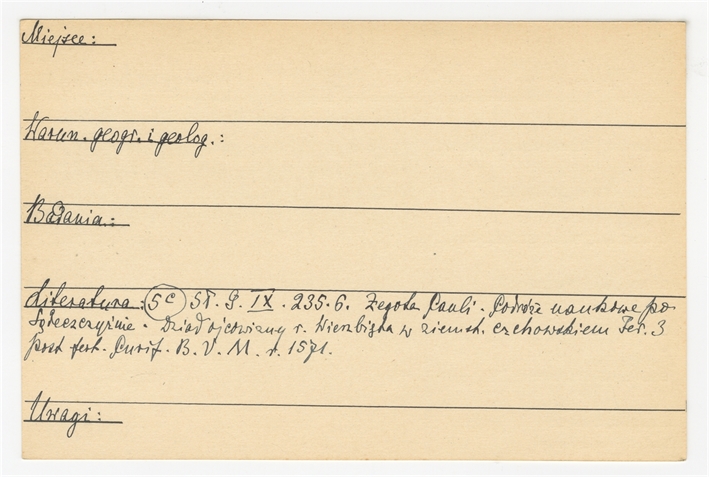 Miejsce:
Warun. geogr. i geolog.:
Badania:
Literatura: 5c St. S. IX. 235.6. Żegota Pauli. Podróże naukowe po
Sądeczczyźnie. Dział ojcowizny r. Wierzbięta w ziemsk. czchowskiem Fer. 3
post fest. Purif. B. V. M. r. 1571.
Uwagi: